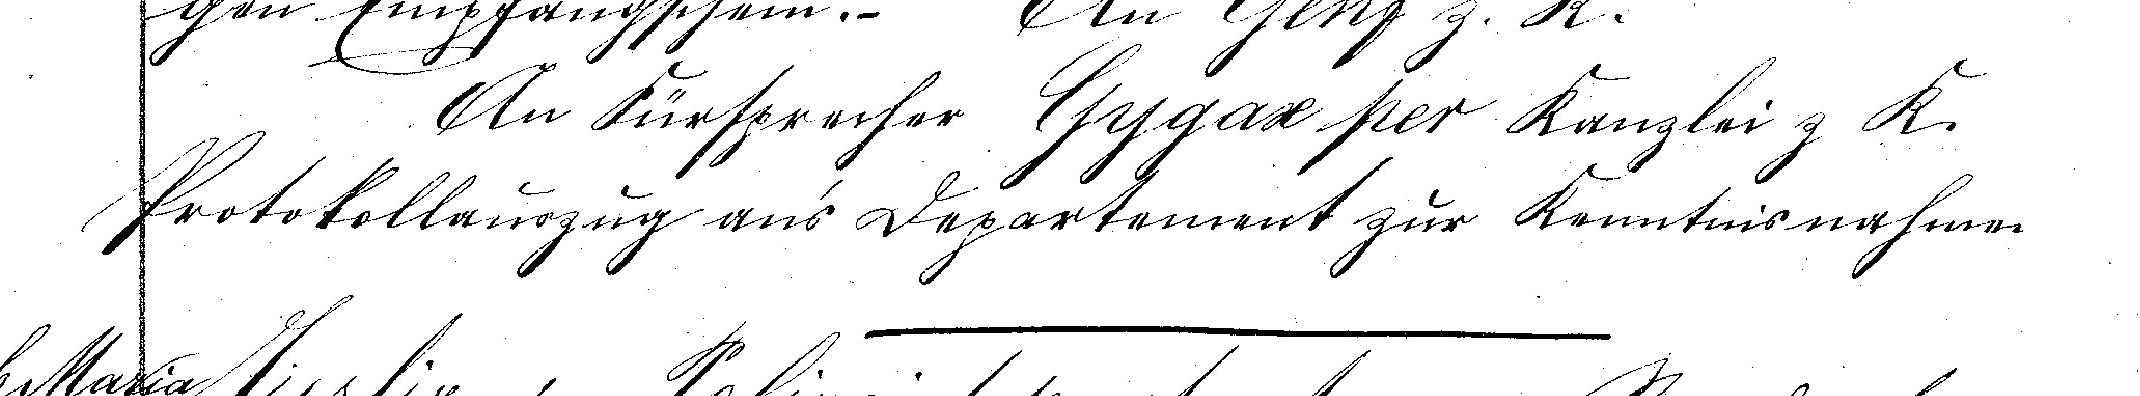 gen Empfangschein.- An Genf z. K.
An Fürsprecher Gygax per Kanzlei z K.
Protokollauszug an's Departement zur Kenntnisnahme
Maria